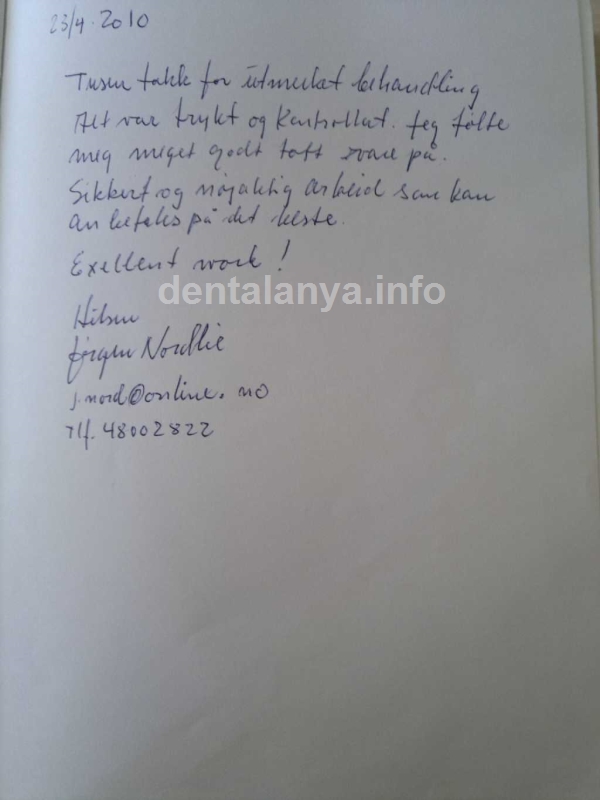 23/4.2010
Tusen takk for utmerket behandling
Alt var trykt og kontrollert. Jeg følte
meg meget godt tatt vare på.
Sikkert og nøyaktig arbeid som kan
anbefales på det beste.
Exellent work!
dentalanya.info
Hilsen
Jørgen Nordlie
j.nord@online.no
Tlf. 48002822